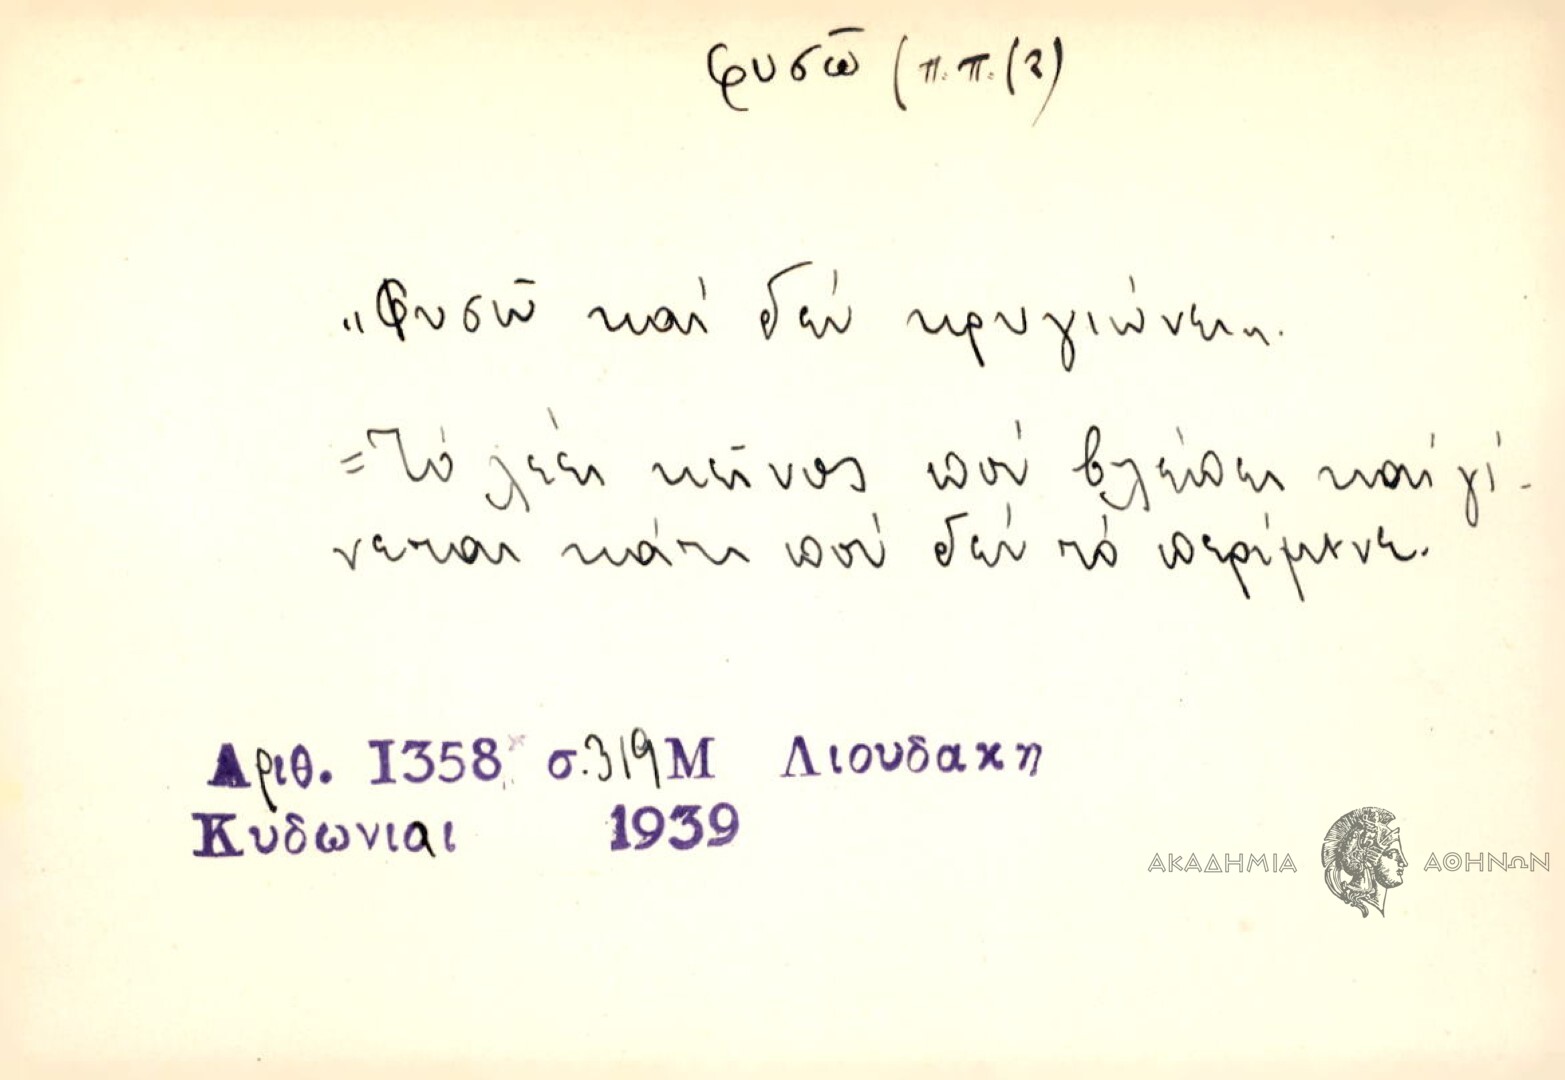 φυσῶ (π.π.(2)
„Φυσῶ καί δέν κρυγιώνει„.
=Τό λέει κεῖνος πού βλέπει καί γί-
νεται κάτι πού δέν τό περίμενε.
Αριθ. 1358 σ.319 Μ Λιουδακη
Κυδωνιαι 1939
ΑΚΑΔΗΜΙΑ ΑΘΗΝΩΝ